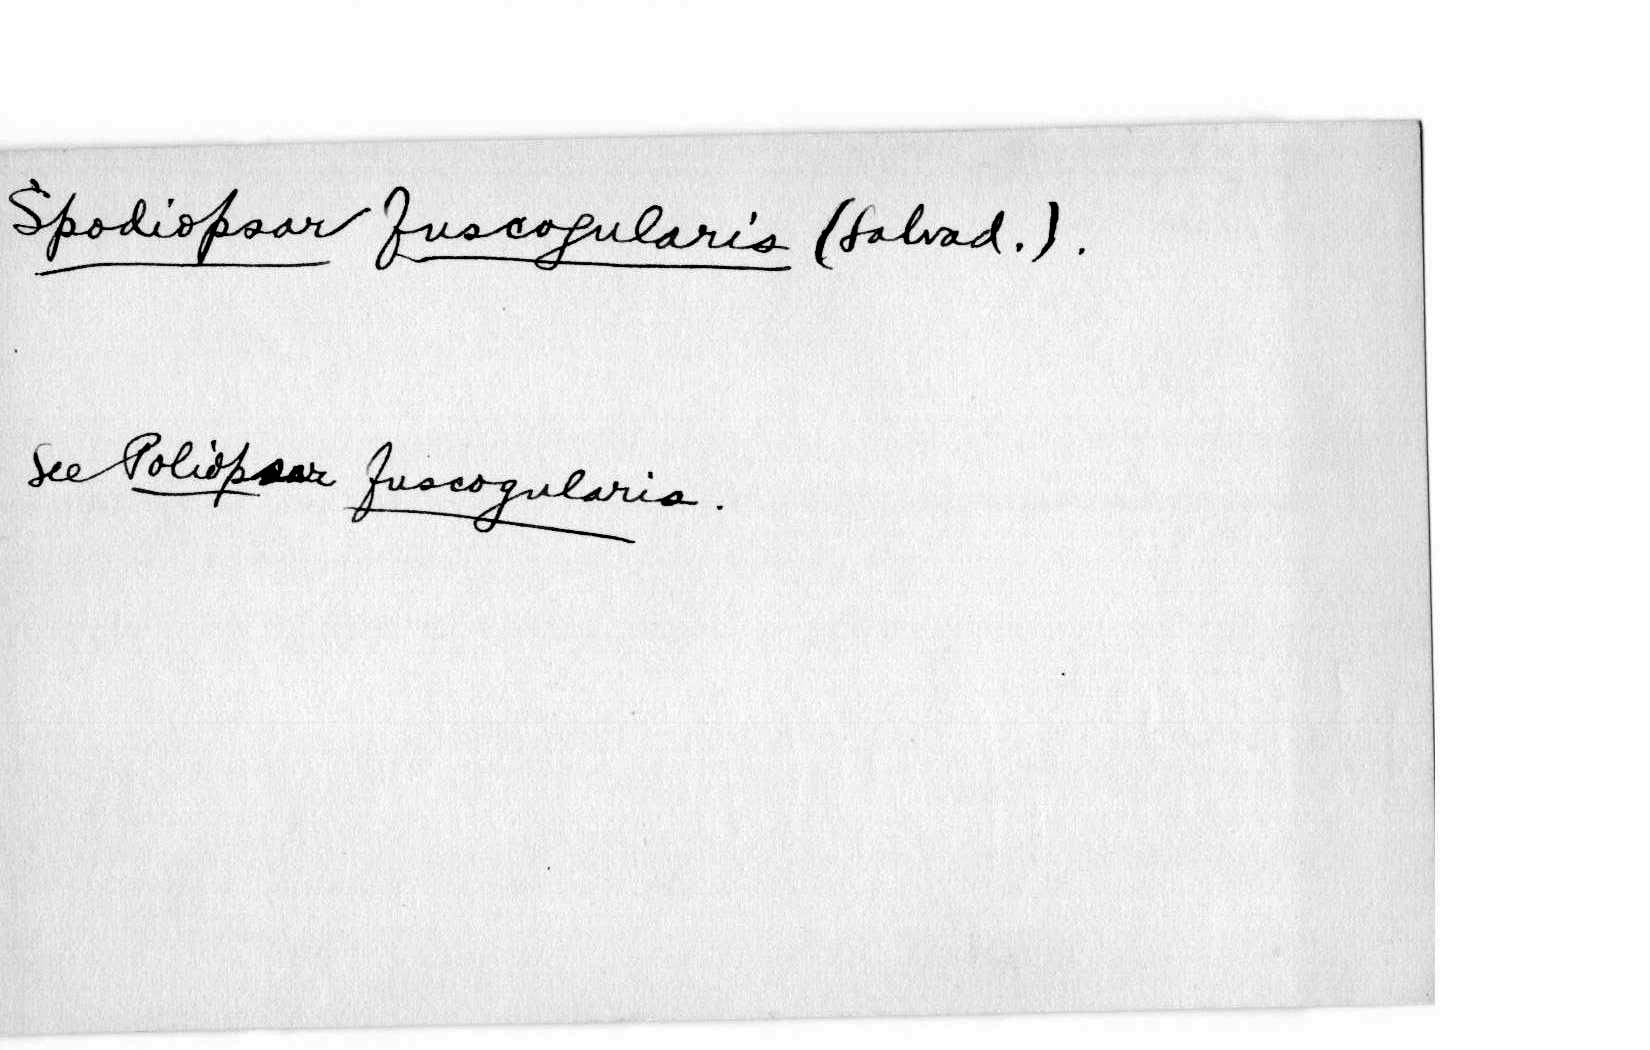 Spodiopsar fuscogularis (Salvad.).
See Poliopsar fuscogularis.